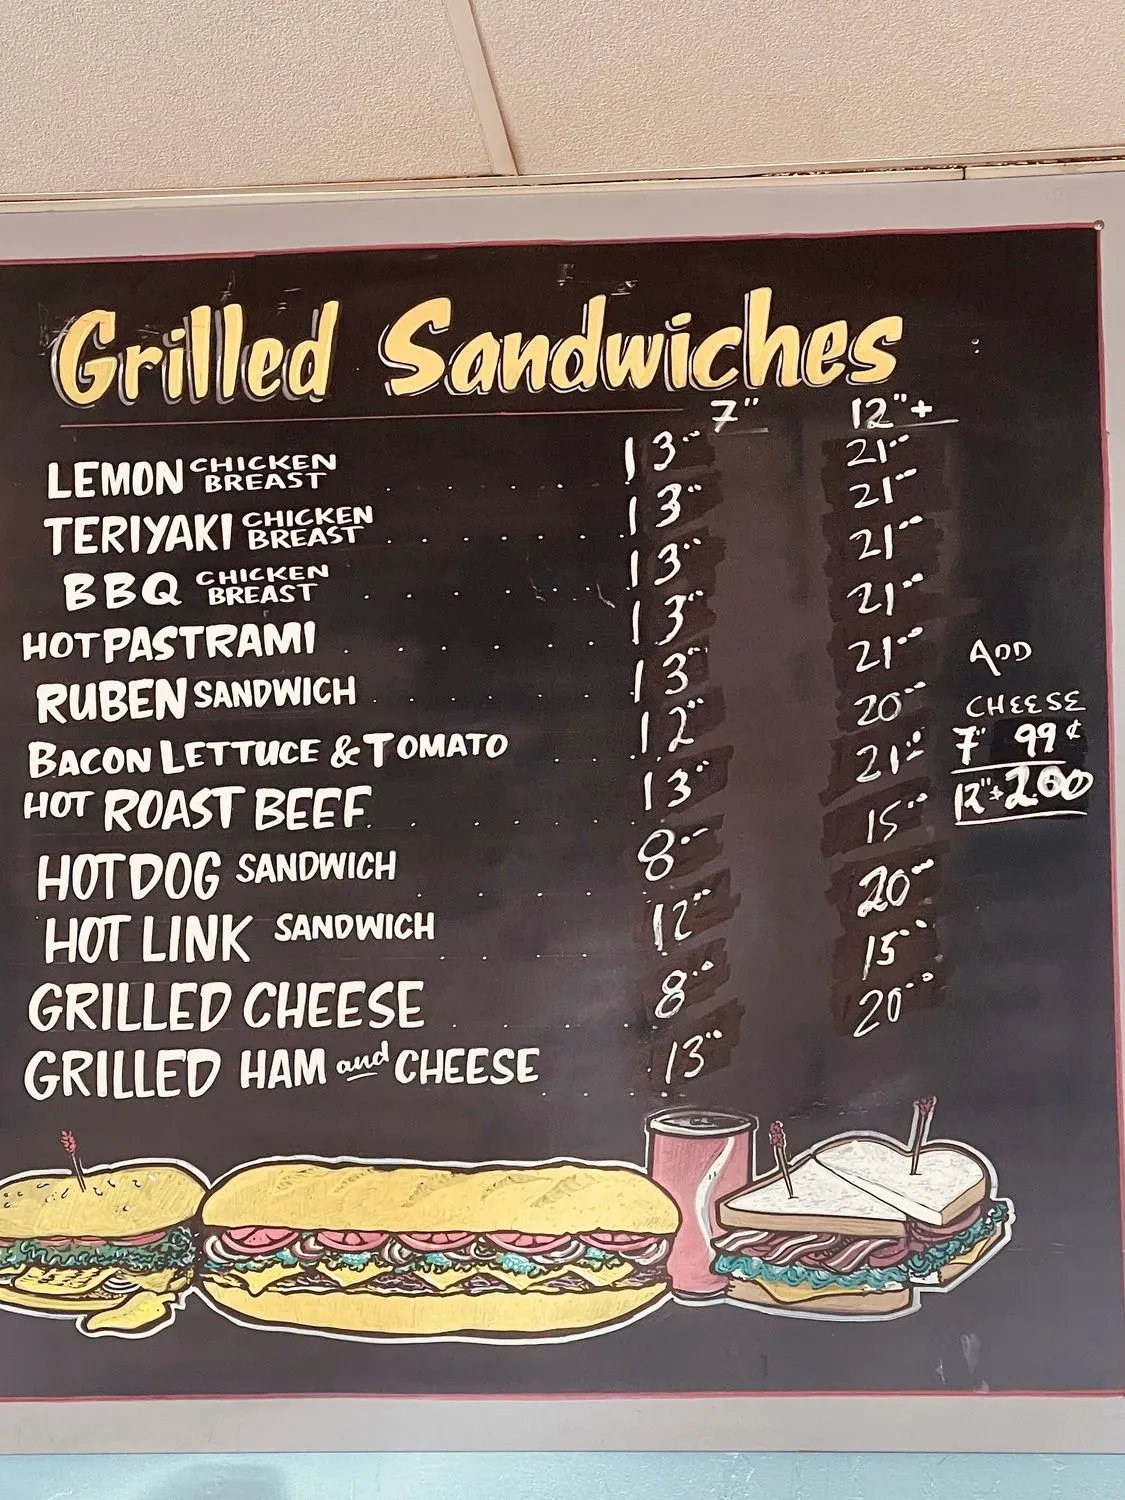 Grilled Sandwiches
7" 12"+
LEMON CHICKEN BREAST . . . . . 13.00 21.00
TERIYAKI CHICKEN BREAST . . . . . . 13.00 21.00
BBQ CHICKEN BREAST . . . . . . 13.00 21.00
HOT PASTRAMI . . . . . . . 13.00 21.00
RUBEN SANDWICH . . . . . . 13.00 21.00
BACON LETTUCE & TOMATO . . . 12.00 20.00
HOT ROAST BEEF . . . . . . . 13.00 21.00
HOT DOG SANDWICH . . . . . 8.00 15.00
HOT LINK SANDWICH . . . . . 12.00 20.00
GRILLED CHEESE . . . . . 8.00 15.00
GRILLED HAM and CHEESE . . . . 13.00 20.00
ADD
CHEESE
7" 99¢
12"+ 2.00